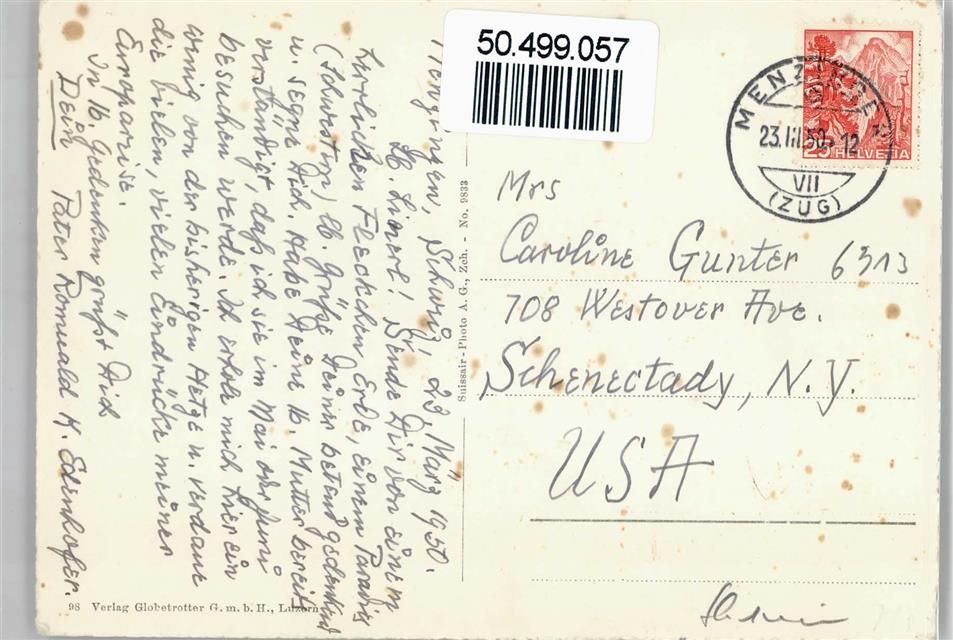 50.499.057
MENZINGEN
23.III.50. - 12
VII
(ZUG)
25 HELVETIA
Menzingen, Schweiz, 23. März 1950.
Lb. Linerl! Sende Dir von einem
herrlichen Fleckchen Erde, einem Paradies
(Schwestern), lb. Grüße Deiner betend gedenkend
u. segne Dich. Habe Deine lb. Mutter bereits
verständigt, daß ich sie im Mai oder Juni
besuchen werde. Ich erhole mich hier ein
wenig von der bisherigen Hetze u. verdaue
die vielen, vielen Eindrücke meiner
Europareise.
In lb. Gedenken grüßt Dich
Dein Pater Romuald K. Edenhofer.
Suissair-Photo A. G., Zch. - No. 9833
Mrs
Caroline Gunter 6313
708 Westover Ave.
Schenectady, N. Y.
USA
98 Verlag Globetrotter G. m. b. H., Luzern